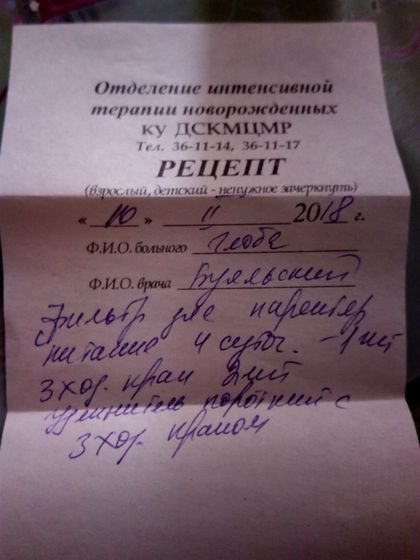 Отделение интенсивной
терапии новорожденных
КУ ДСКМЦМР
Тел. 36-11-14, 36-11-17
РЕЦЕПТ
(взрослый, детский - ненужное зачеркнуть)
« 10 » II 2018 г.
Ф.И.О. больного Глоба
Ф.И.О. врача Буяльский
Фильтр для парентер
питание 4 суточ. - 1 шт
3 ход. кран 2 шт
удлинитель короткий с
3 ход. краном